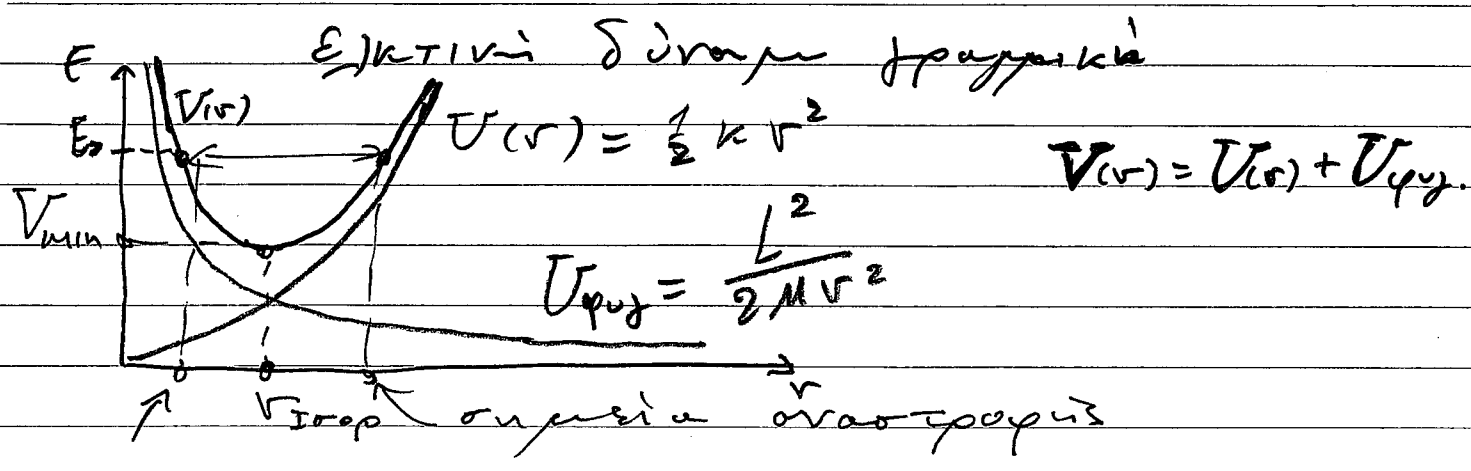 Ελκτική δύναμη γραμμική
E
V(r)
E₀
U(r) = ½ k r²
V(r) = U(r) + Uφυγ.
Vmin
Uφυγ = L² / 2μr²
r
rΙσορ σημεία αναστροφής